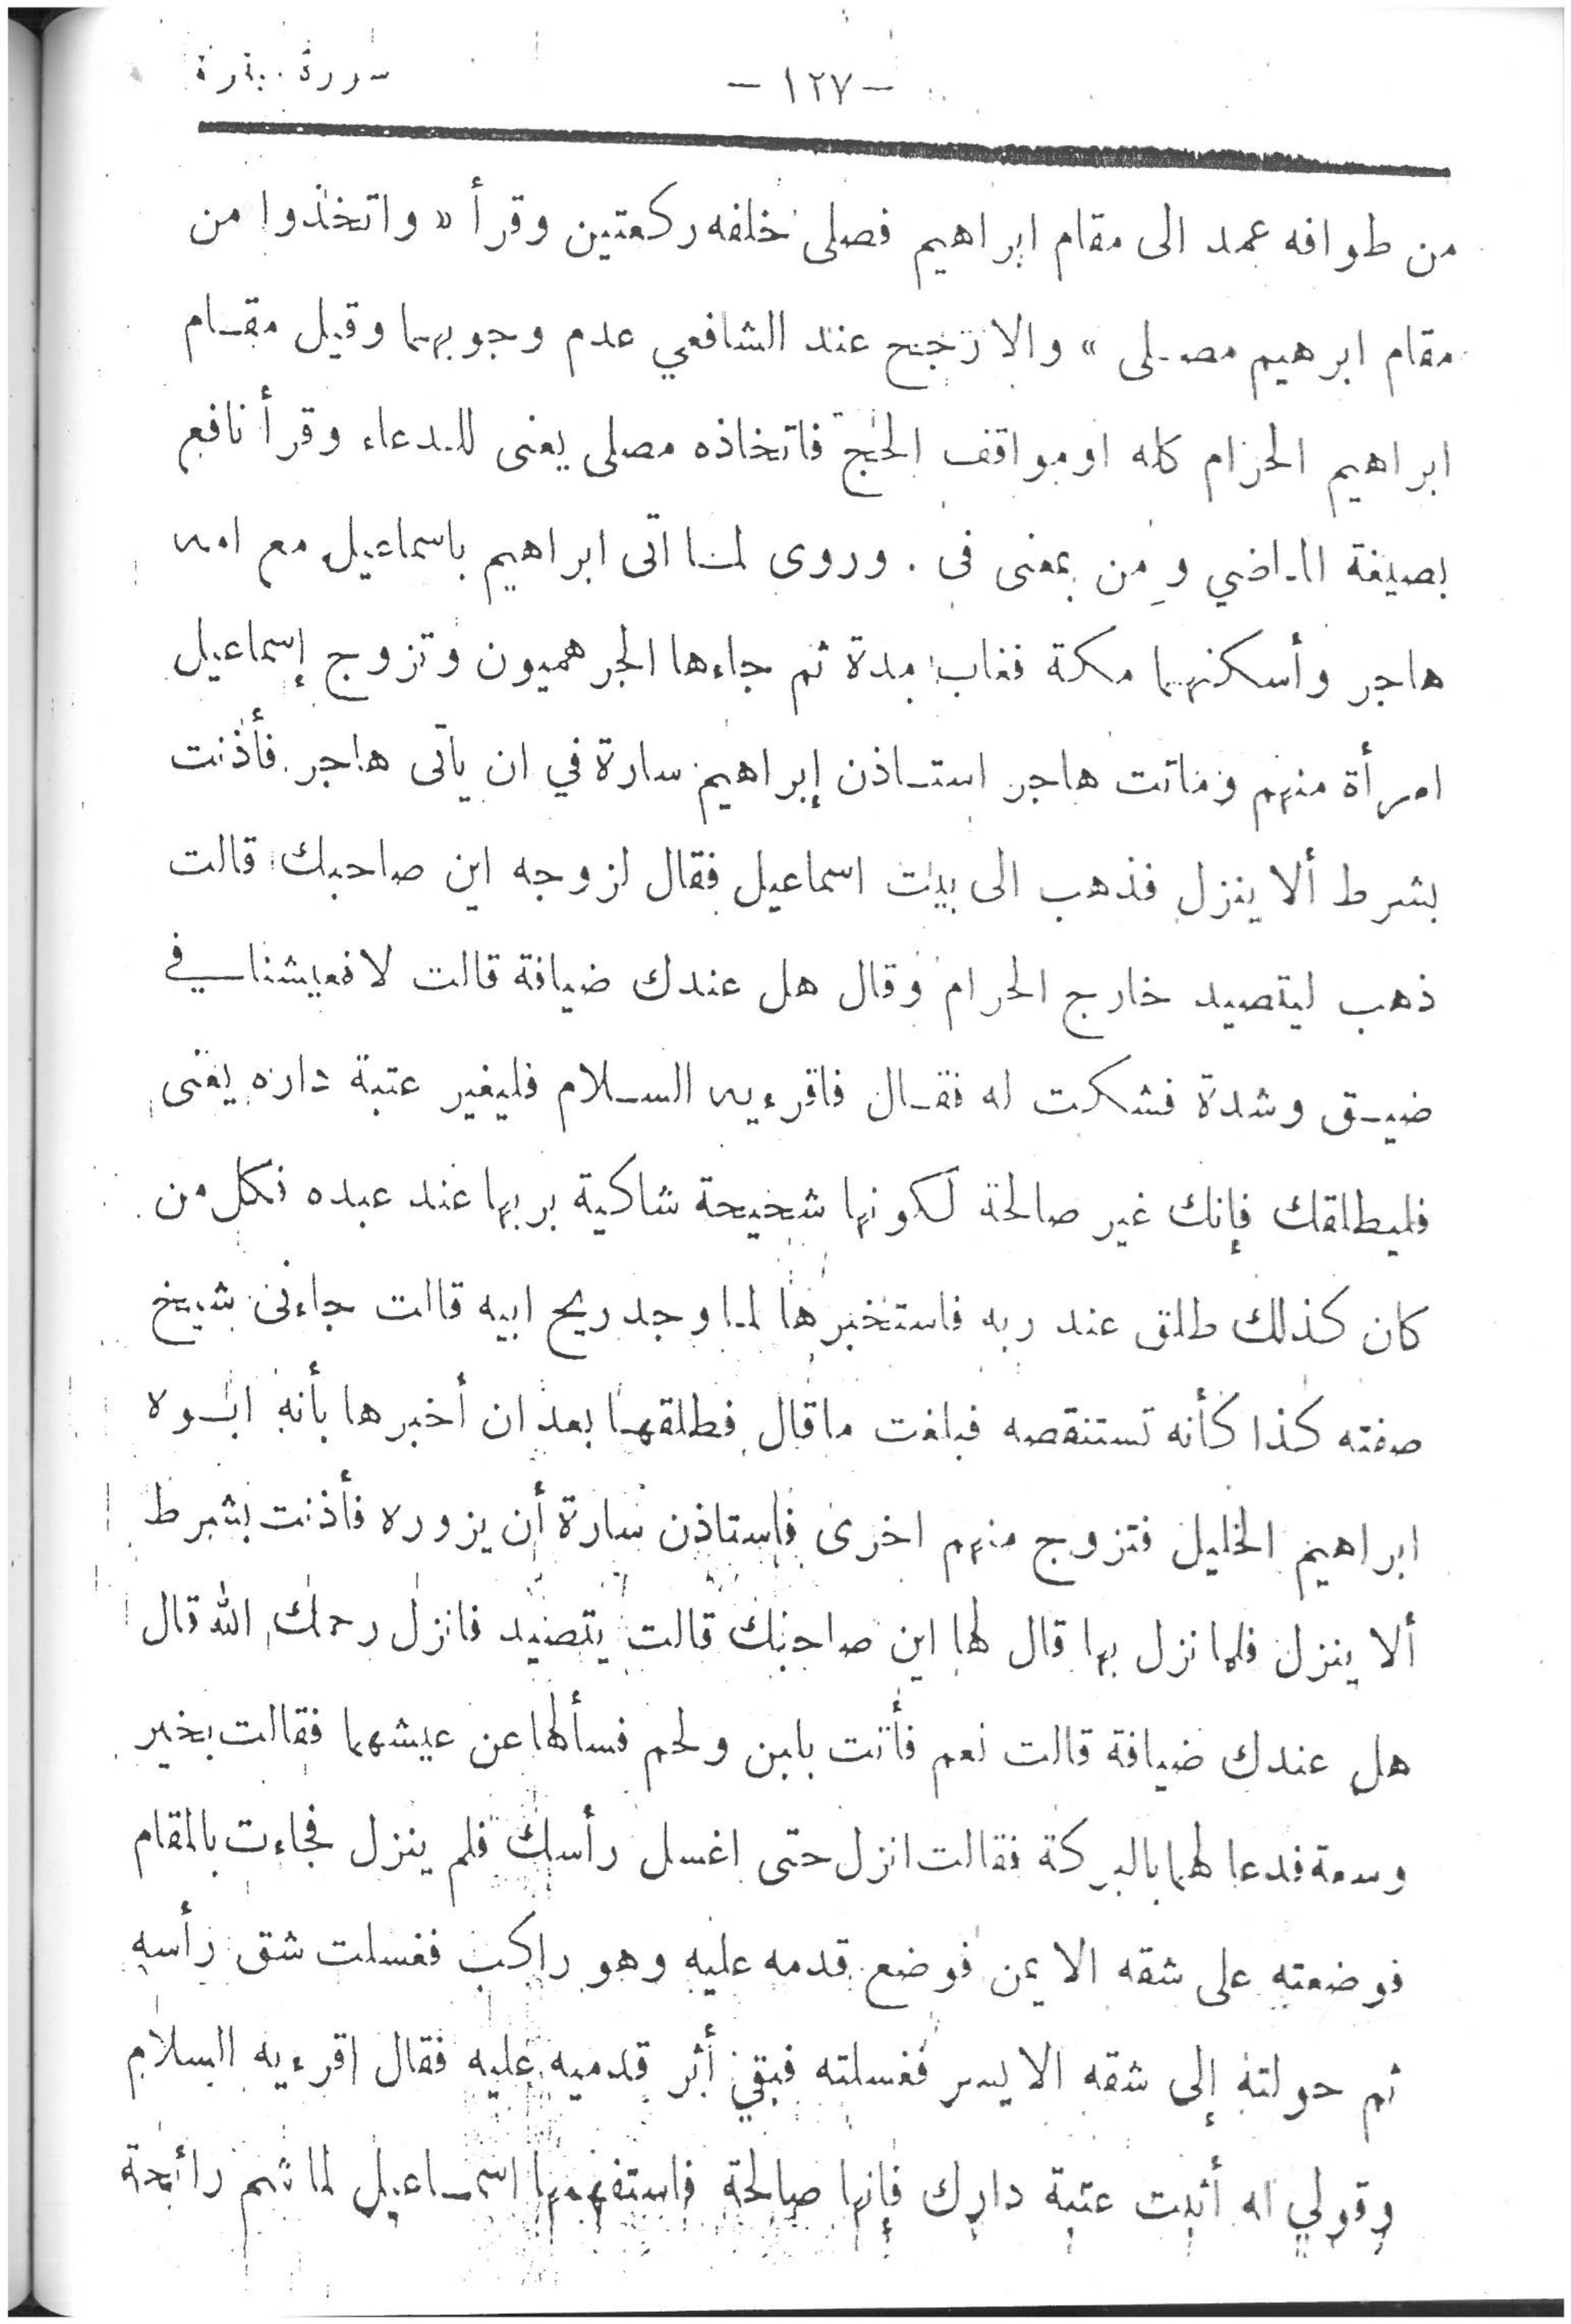 سورة بقرة
- ١٢٧ -
من طوافه عمد الى مقام ابراهيم فصلى خلفه ركعتين وقرأ « واتخذوا من
مقام ابرهيم مصلى » والارجح عند الشافعي عدم وجوبهما وقيل مقام
ابراهيم الحرام كله او مواقف الحج فاتخاذه مصلى يعنى للدعاء وقرأ نافع
بصيغة الماضي ومن بمعنى فى . وروى لما اتى ابراهيم باسماعيل مع امه
هاجر وأسكنهما مكة فغاب مدة ثم جاءها الجرهميون وتزوج إسماعيل
امرأة منهم وماتت هاجر استاذن إبراهيم سارة في ان ياتى هاجر فأذنت
بشرط ألا ينزل فذهب الى بيت اسماعيل فقال لزوجه اين صاحبك قالت
ذهب ليتصيد خارج الحرام وقال هل عندك ضيافة قالت لا فعيشنا في
ضيق وشدة فشكت له فقال فاقرءيه السلام فليغير عتبة داره يعنى
فليطلقك فإنك غير صالحة لكونها شحيحة شاكية بربها عند عبده فكل من
كان كذلك طلق عند ربه فاستخبرها لما وجد ريح ابيه قالت جاءنى شيخ
صفته كذا كأنه تستنقصه فبلغت ماقال فطلقها بعد ان أخبرها بأنه ابوه
ابراهيم الخليل فتزوج منهم اخرى فاستاذن سارة أن يزوره فأذنت بشرط
ألا ينزل فلما نزل بها قال لها اين صاحبك قالت يتصيد فانزل رحمك الله قال
هل عندك ضيافة قالت نعم فأتت بلبن ولحم فسألها عن عيشهما فقالت بخير
وسعة فدعا لهما بالبركة فقالت انزل حتى اغسل رأسك فلم ينزل فجاءت بالمقام
فوضعته على شقه الايمن فوضع قدمه عليه وهو راكب فغسلت شق رأسه
ثم حولته إلى شقه الايسر فغسلته فبقي أثر قدميه عليه فقال اقرءيه السلام
وقولي له أثبت عتبة دارك فإنها صالحة فاستفهمها اسماعيل لما شم رائحة